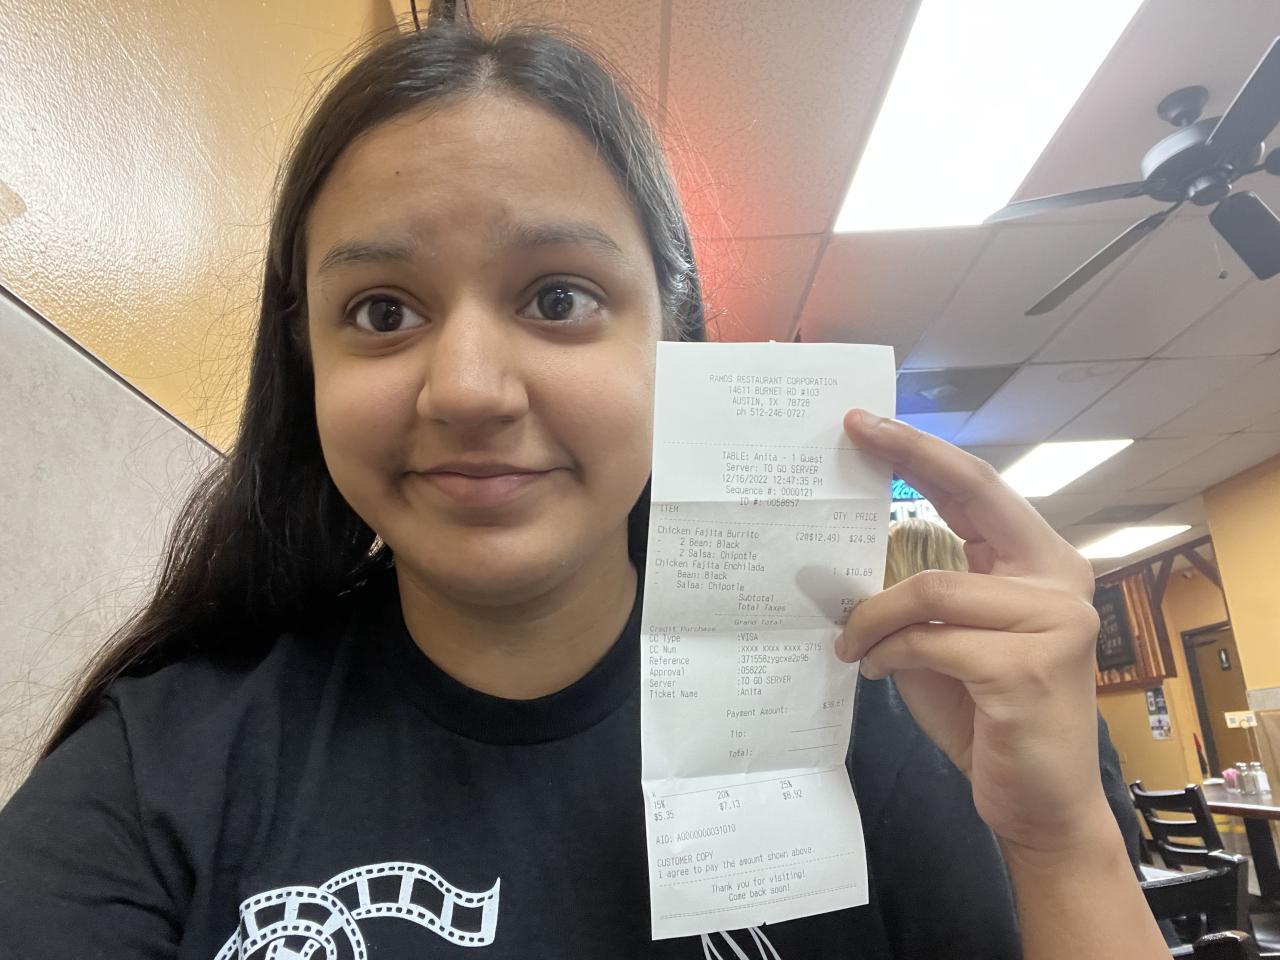 RAMOS RESTAURANT CORPORATION
14611 BURNET RD #103
AUSTIN, TX 78728
ph 512-246-0727
TABLE: Anita - 1 Guest
Server: TO GO SERVER
12/16/2022 12:47:35 PM
Sequence #: 0000121
ID #: 0058857
ITEM QTY PRICE
Chicken Fajita Burrito (2@$12.49) $24.98
- 2 Bean: Black
- 2 Salsa: Chipotle
Chicken Fajita Enchilada 1 $10.69
- Bean: Black
- Salsa: Chipotle
Subtotal
Total Taxes
Grand Total
Credit Purchase
CC Type :VISA
CC Num :xxxx xxxx xxxx 3715
Reference :371558zygcxe2p96
Approval :05822C
Server :TO GO SERVER
Ticket Name :Anita
Payment Amount: $38.61
Tip:
Total:
15% 20% 25%
$5.35 $7.13 $8.92
AID: A0000000031010
CUSTOMER COPY
I agree to pay the amount shown above.
Thank you for visiting!
Come back soon!